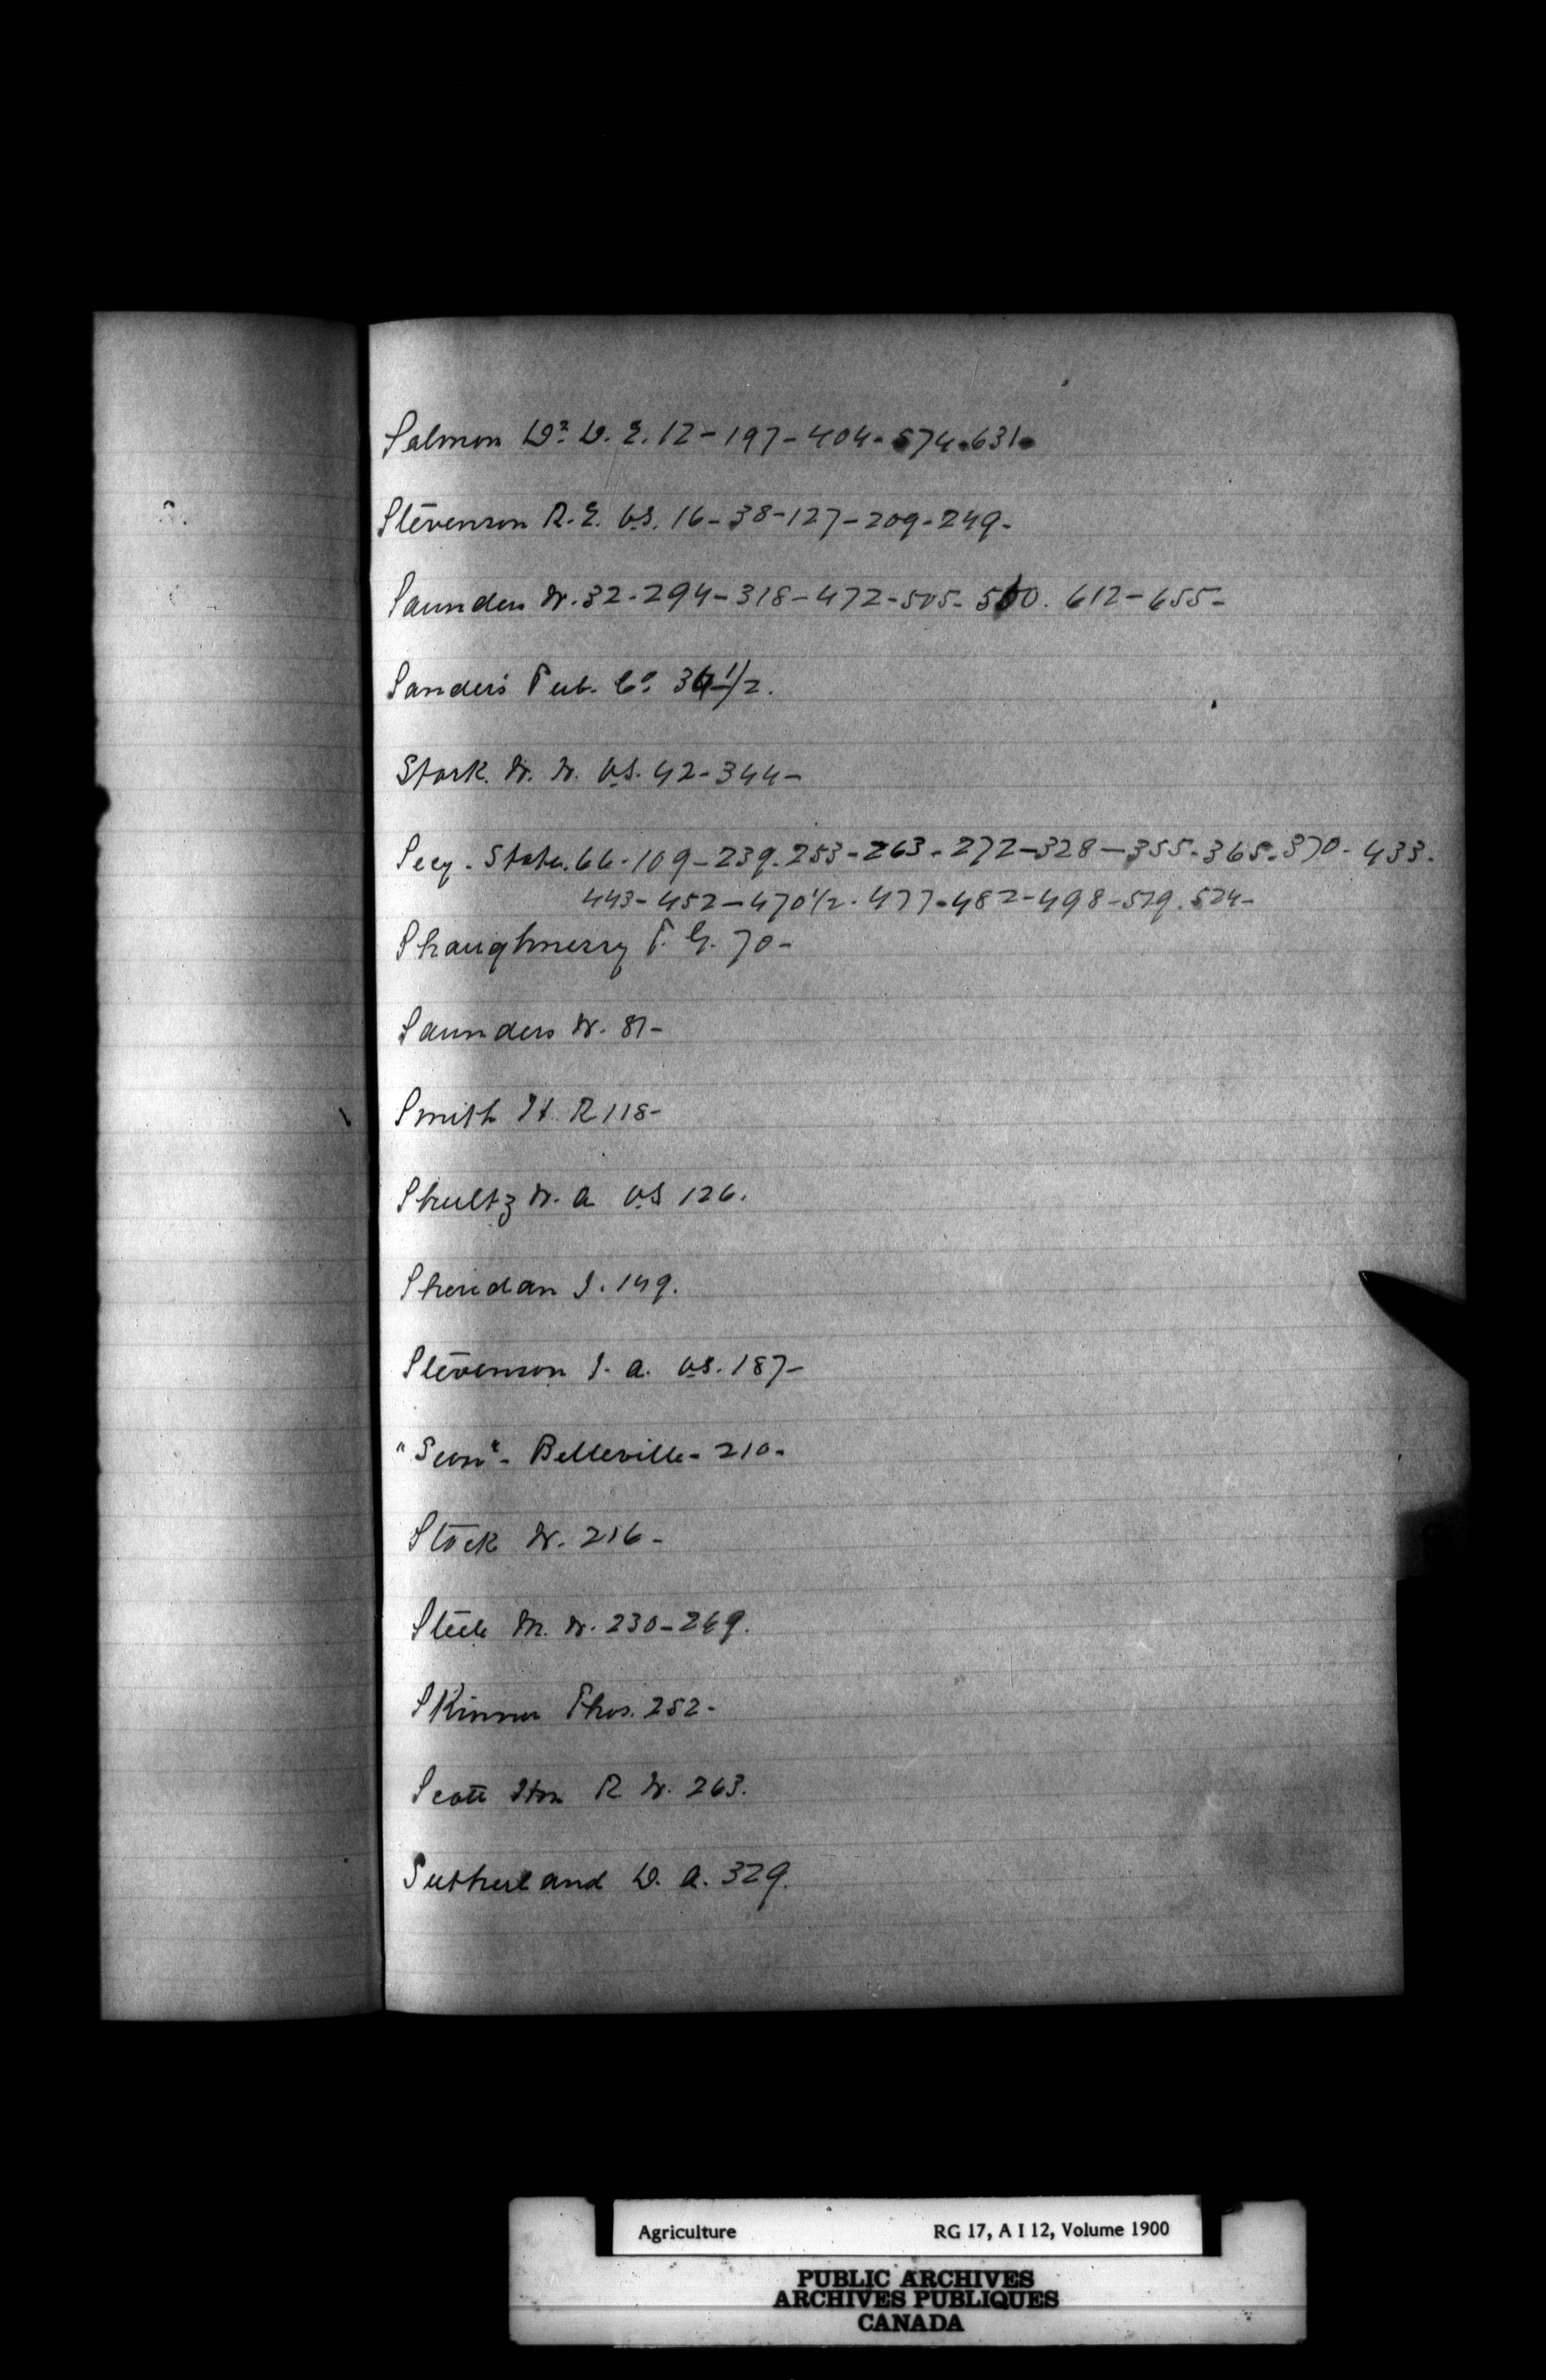 Salmon Dr. D. E. 12-197-404-574.631.
Stevenson R. E. V.S. 16-38-127-209-249-
Saunders W. 32-294-318-472-505-560. 612-655-
Sanders Pub. Co. 36 1/2.
Stork. W. W. V.S. 42-344-
Secy. State. 66-109-239.253-263-272-328-355-365-370-433.
443-452-470 1/2. 477-482-498-519.524-
Shaughnessy T. G. 70-
Saunders W. 87-
Smith H. R 118-
Shultz W. A V.S 126.
Sheridan J. 149.
Stevenson J. A. V.S. 187-
"Sun"- Belleville- 210-
Stock W. 216-
Steele M. W. 230-249.
Skinner Thos. 252-
Scott Hon R W. 263.
Sutherland D. A. 329.
Agriculture RG 17, A I 12, Volume 1900
PUBLIC ARCHIVES
ARCHIVES PUBLIQUES
CANADA